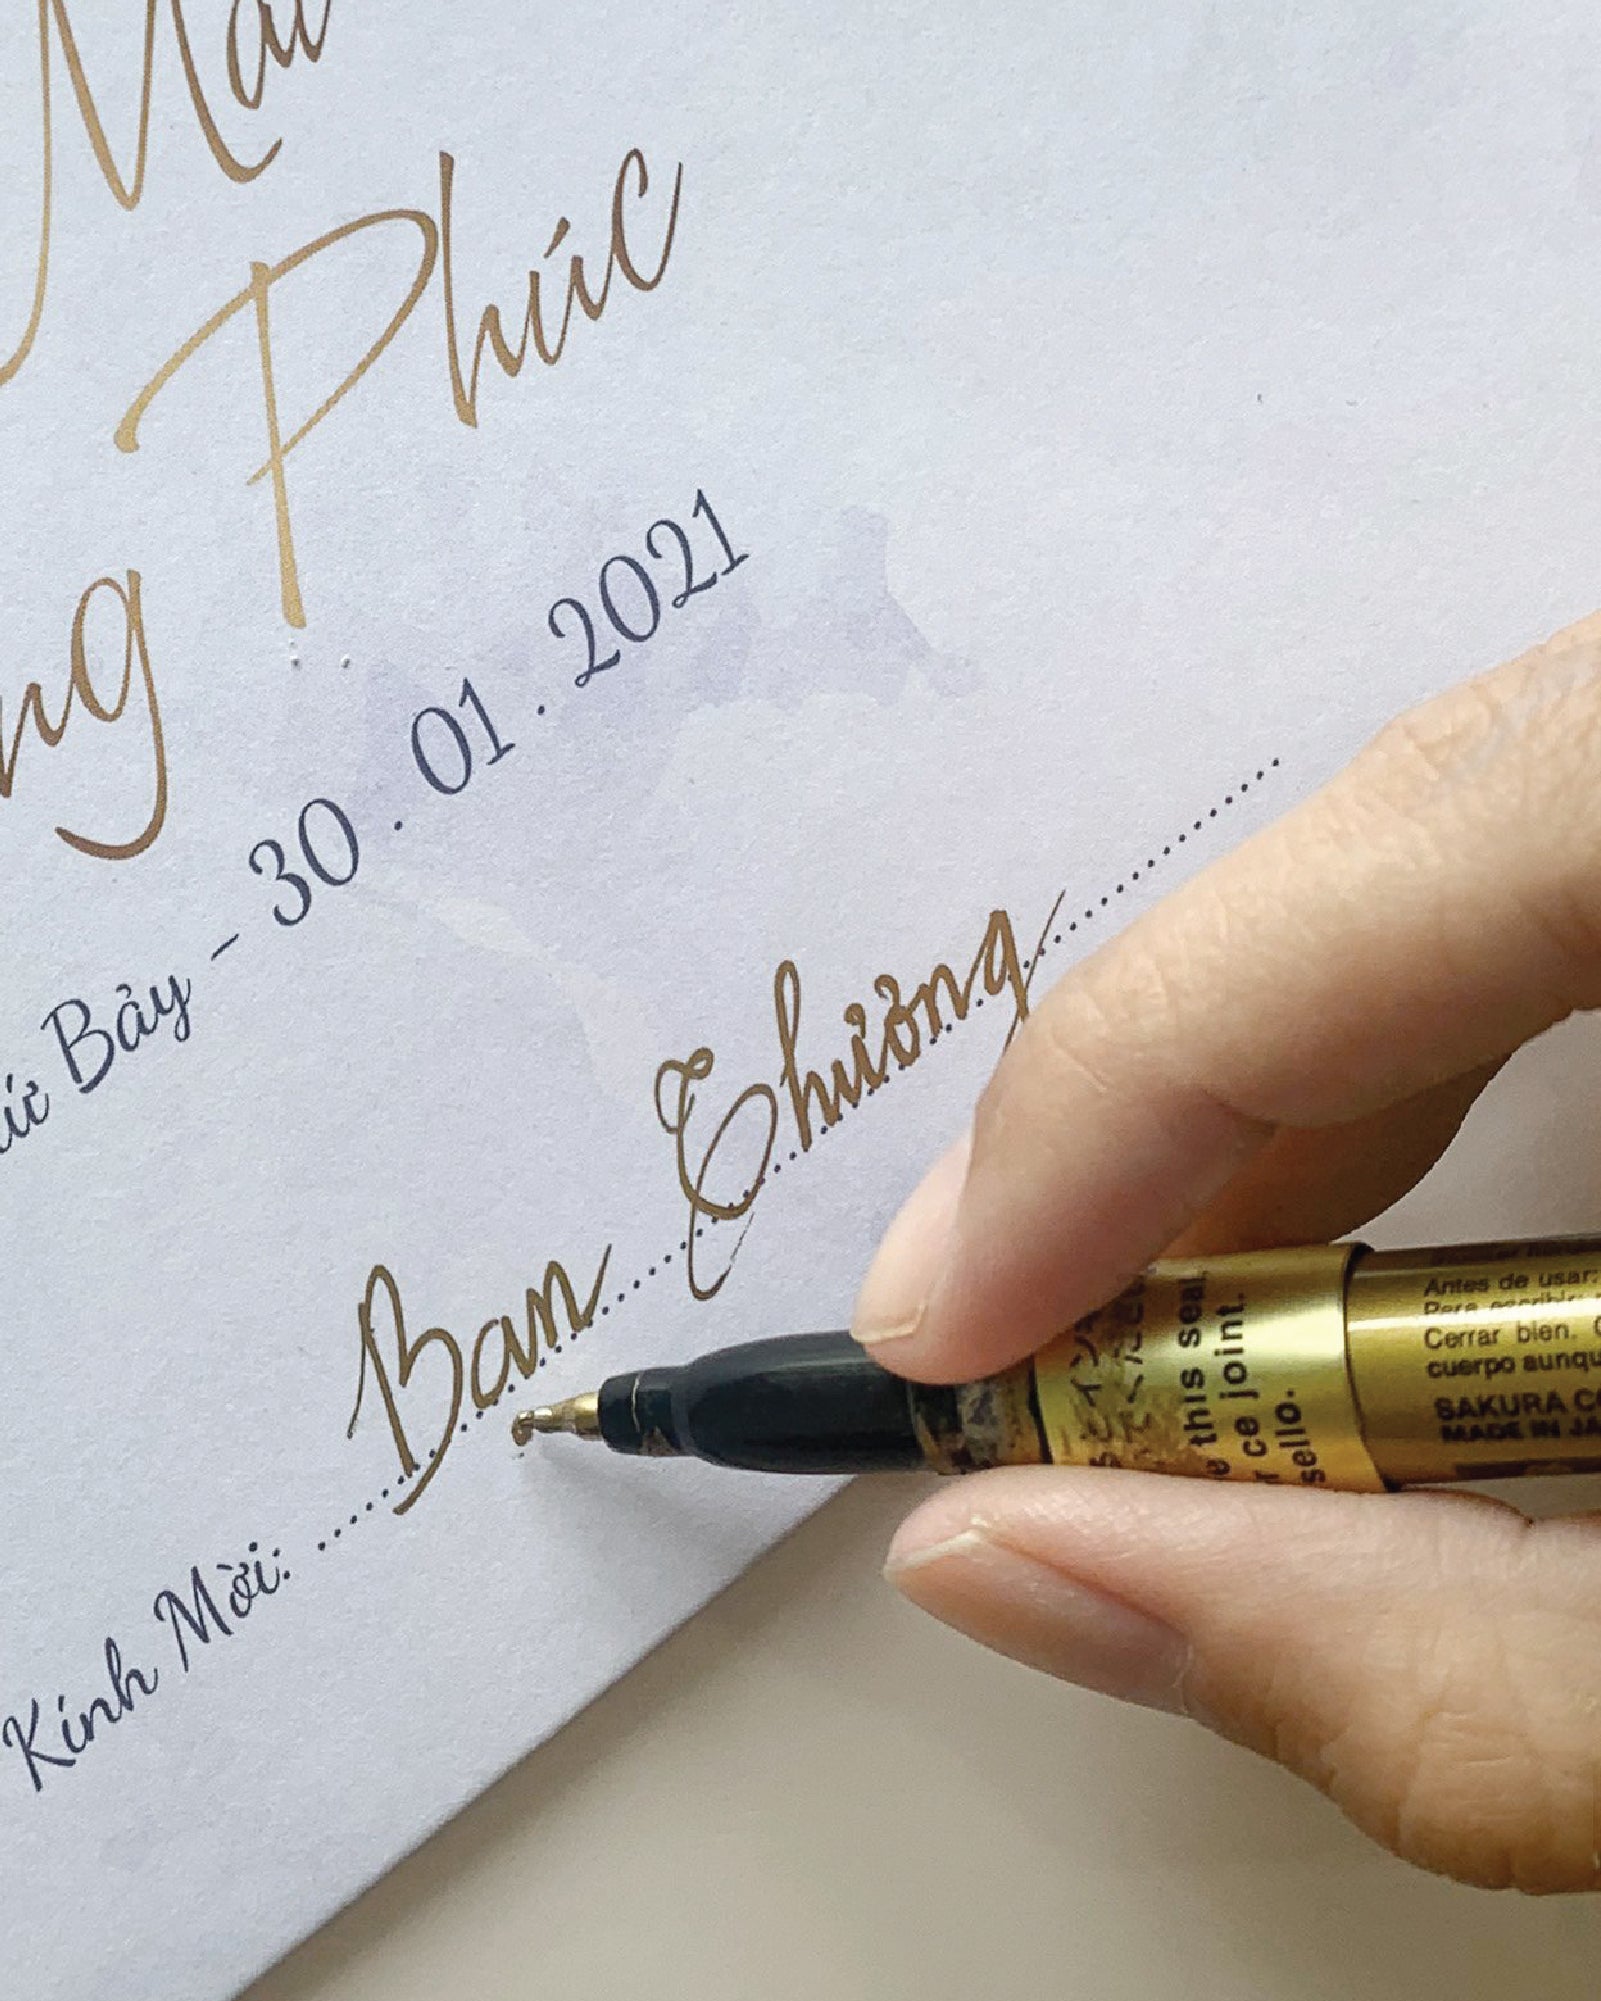 Mai
Phúc
ng
Thứ Bảy - 30 . 01 . 2021
Kính Mời: Bạn Thưởng
this seal,
ce joint.
sello.
Antes de usar:
Para escribir:
Cerrar bien.
cuerpo aunqu
SAKURA CO
MADE IN JA